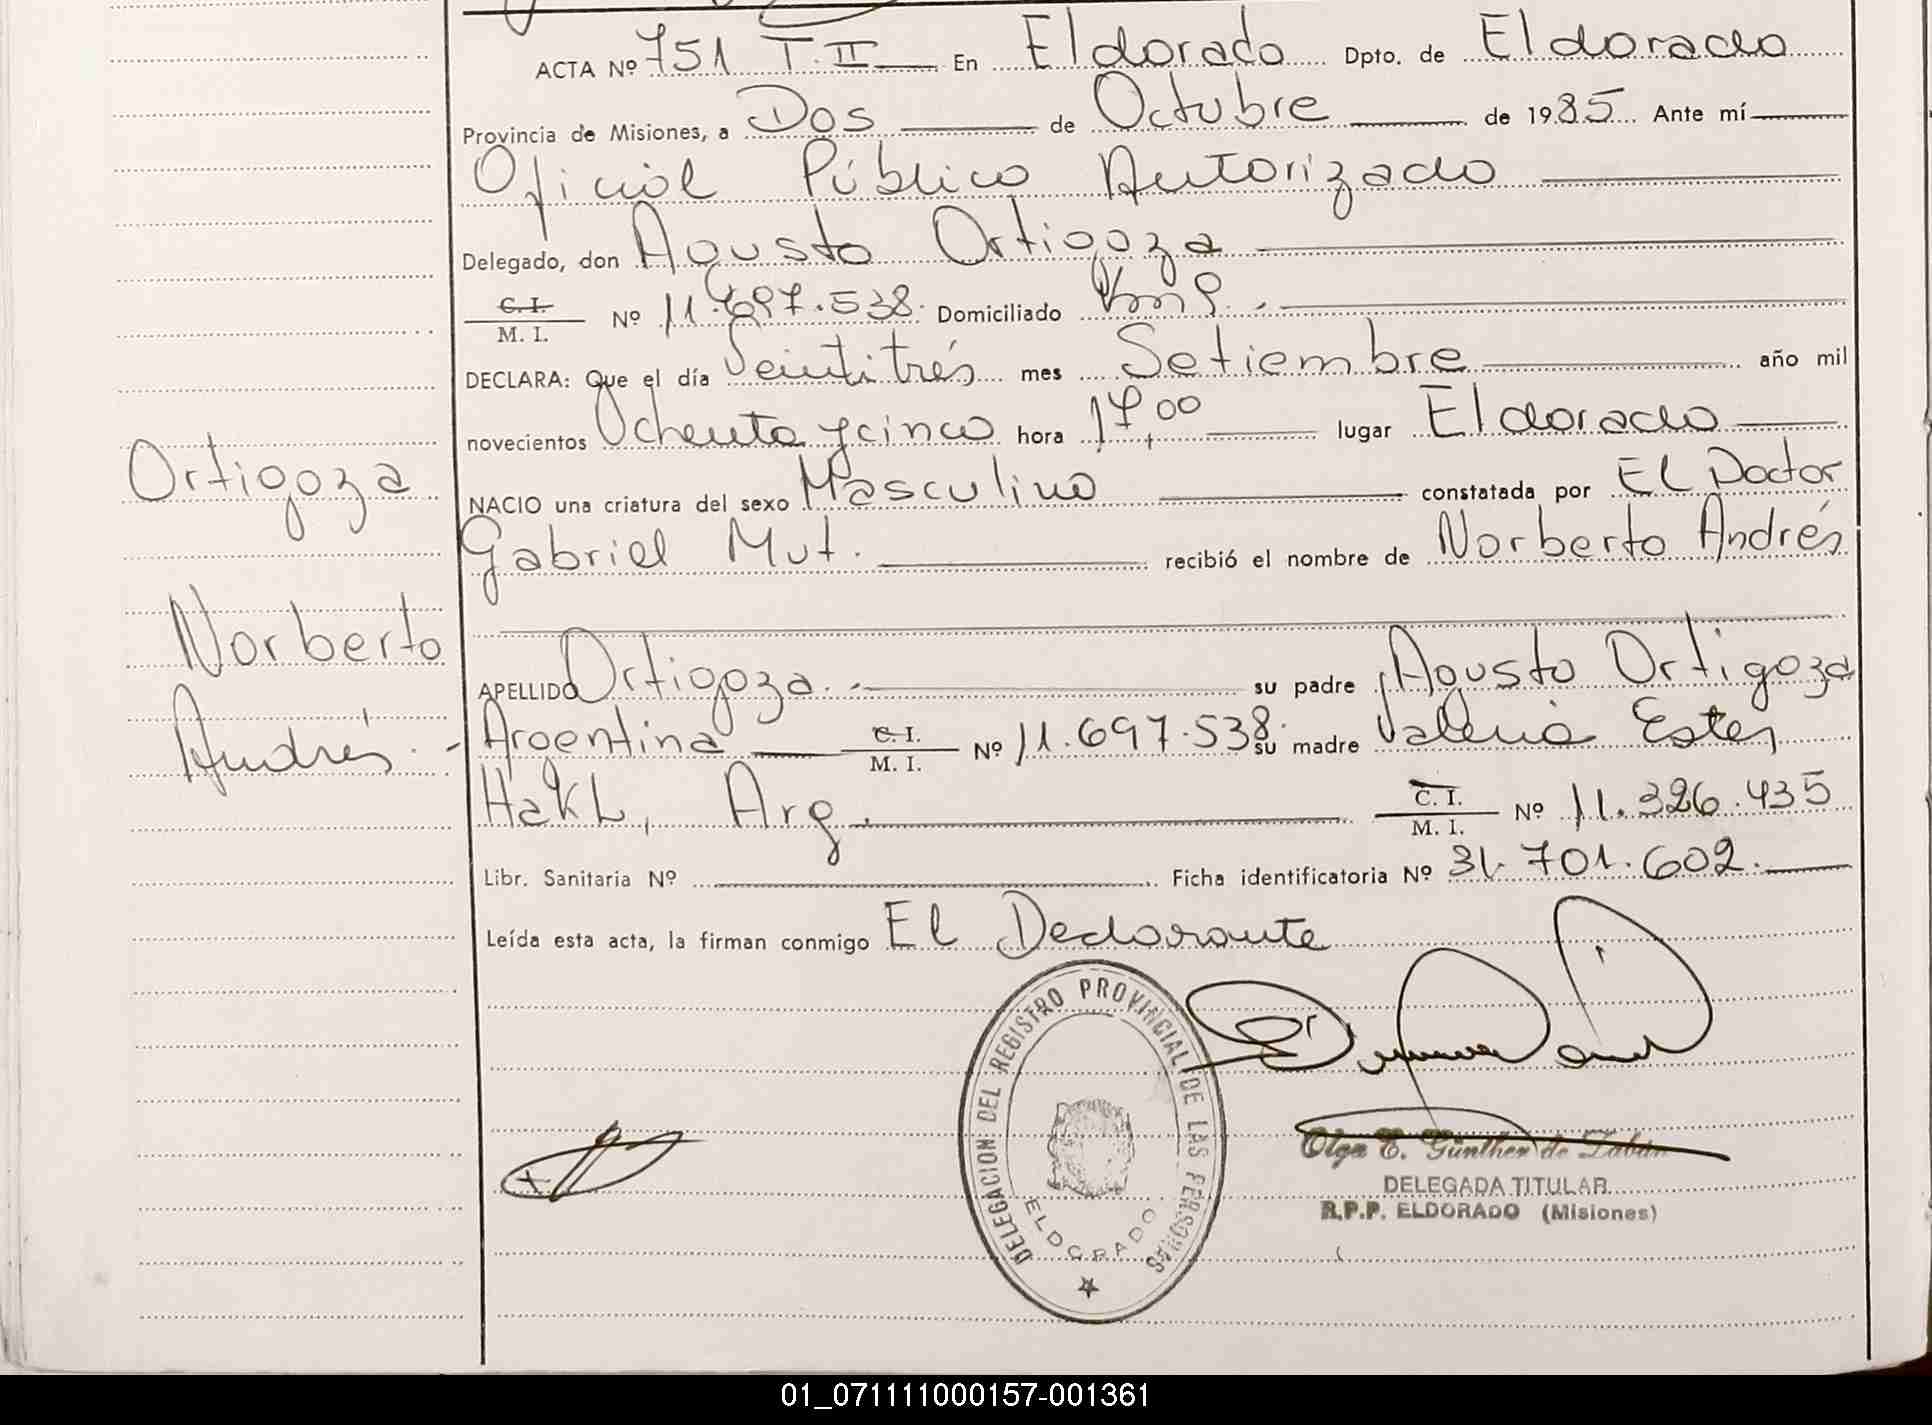 ACTA Nº 751 T. II En Eldorado Dpto. de Eldorado
Provincia de Misiones, a Dos de Octubre de 1985 Ante mí
Oficial Público Autorizado
Delegado, don Agusto Ortigoza
C. I. M. I. Nº 11.697.538. Domiciliado
DECLARA: Que el día Veintitrés mes Setiembre año mil
novecientos Ochenta y cinco hora 17,00 lugar Eldorado
NACIO una criatura del sexo Masculino constatada por El Doctor
Gabriel Mut. recibió el nombre de Norberto Andrés
Ortigoza
Norberto
Andrés.-
APELLIDO Ortigoza.- su padre Agusto Ortigoza
Argentina C. I. M. I. Nº 11.697.538. su madre Valeria Ester
Hakl, Arg. C. I. M. I. Nº 11.326.435
Libr. Sanitaria Nº Ficha identificatoria Nº 31.701.602.
Leída esta acta, la firman conmigo El Declarante
DELEGACION DEL REGISTRO PROVINCIAL DE LAS PERSONAS
ELDORADO
Olga E. Günther de
DELEGADA TITULAR
R.P.P. ELDORADO (Misiones)
01_071111000157-001361